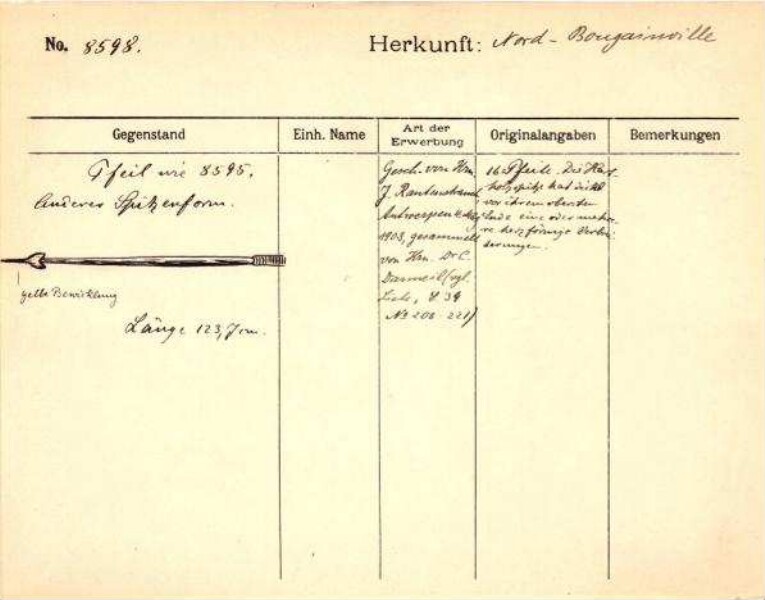 No. 8598.
Herkunft: Nord-Bougainville
Gegenstand
Einh. Name
Art der
Erwerbung
Originalangaben
Bemerkungen
Pfeil wie 8595.
Andere Spitzenform.
gelbe Bewicklung
Länge 123,7 cm.
Gesch. von Hrn.
J. Rautenstrauch
Antwerpen
1903, gesammelt
von Hrn. Dr C.
(vgl.
Liste, S 34
No 208-221)
16 Pfeile. Die Hart-
holzspitze hat dicht
vor ihrem obersten
Ende eine oder mehre-
re herzförmige Verbrei-
terungen.